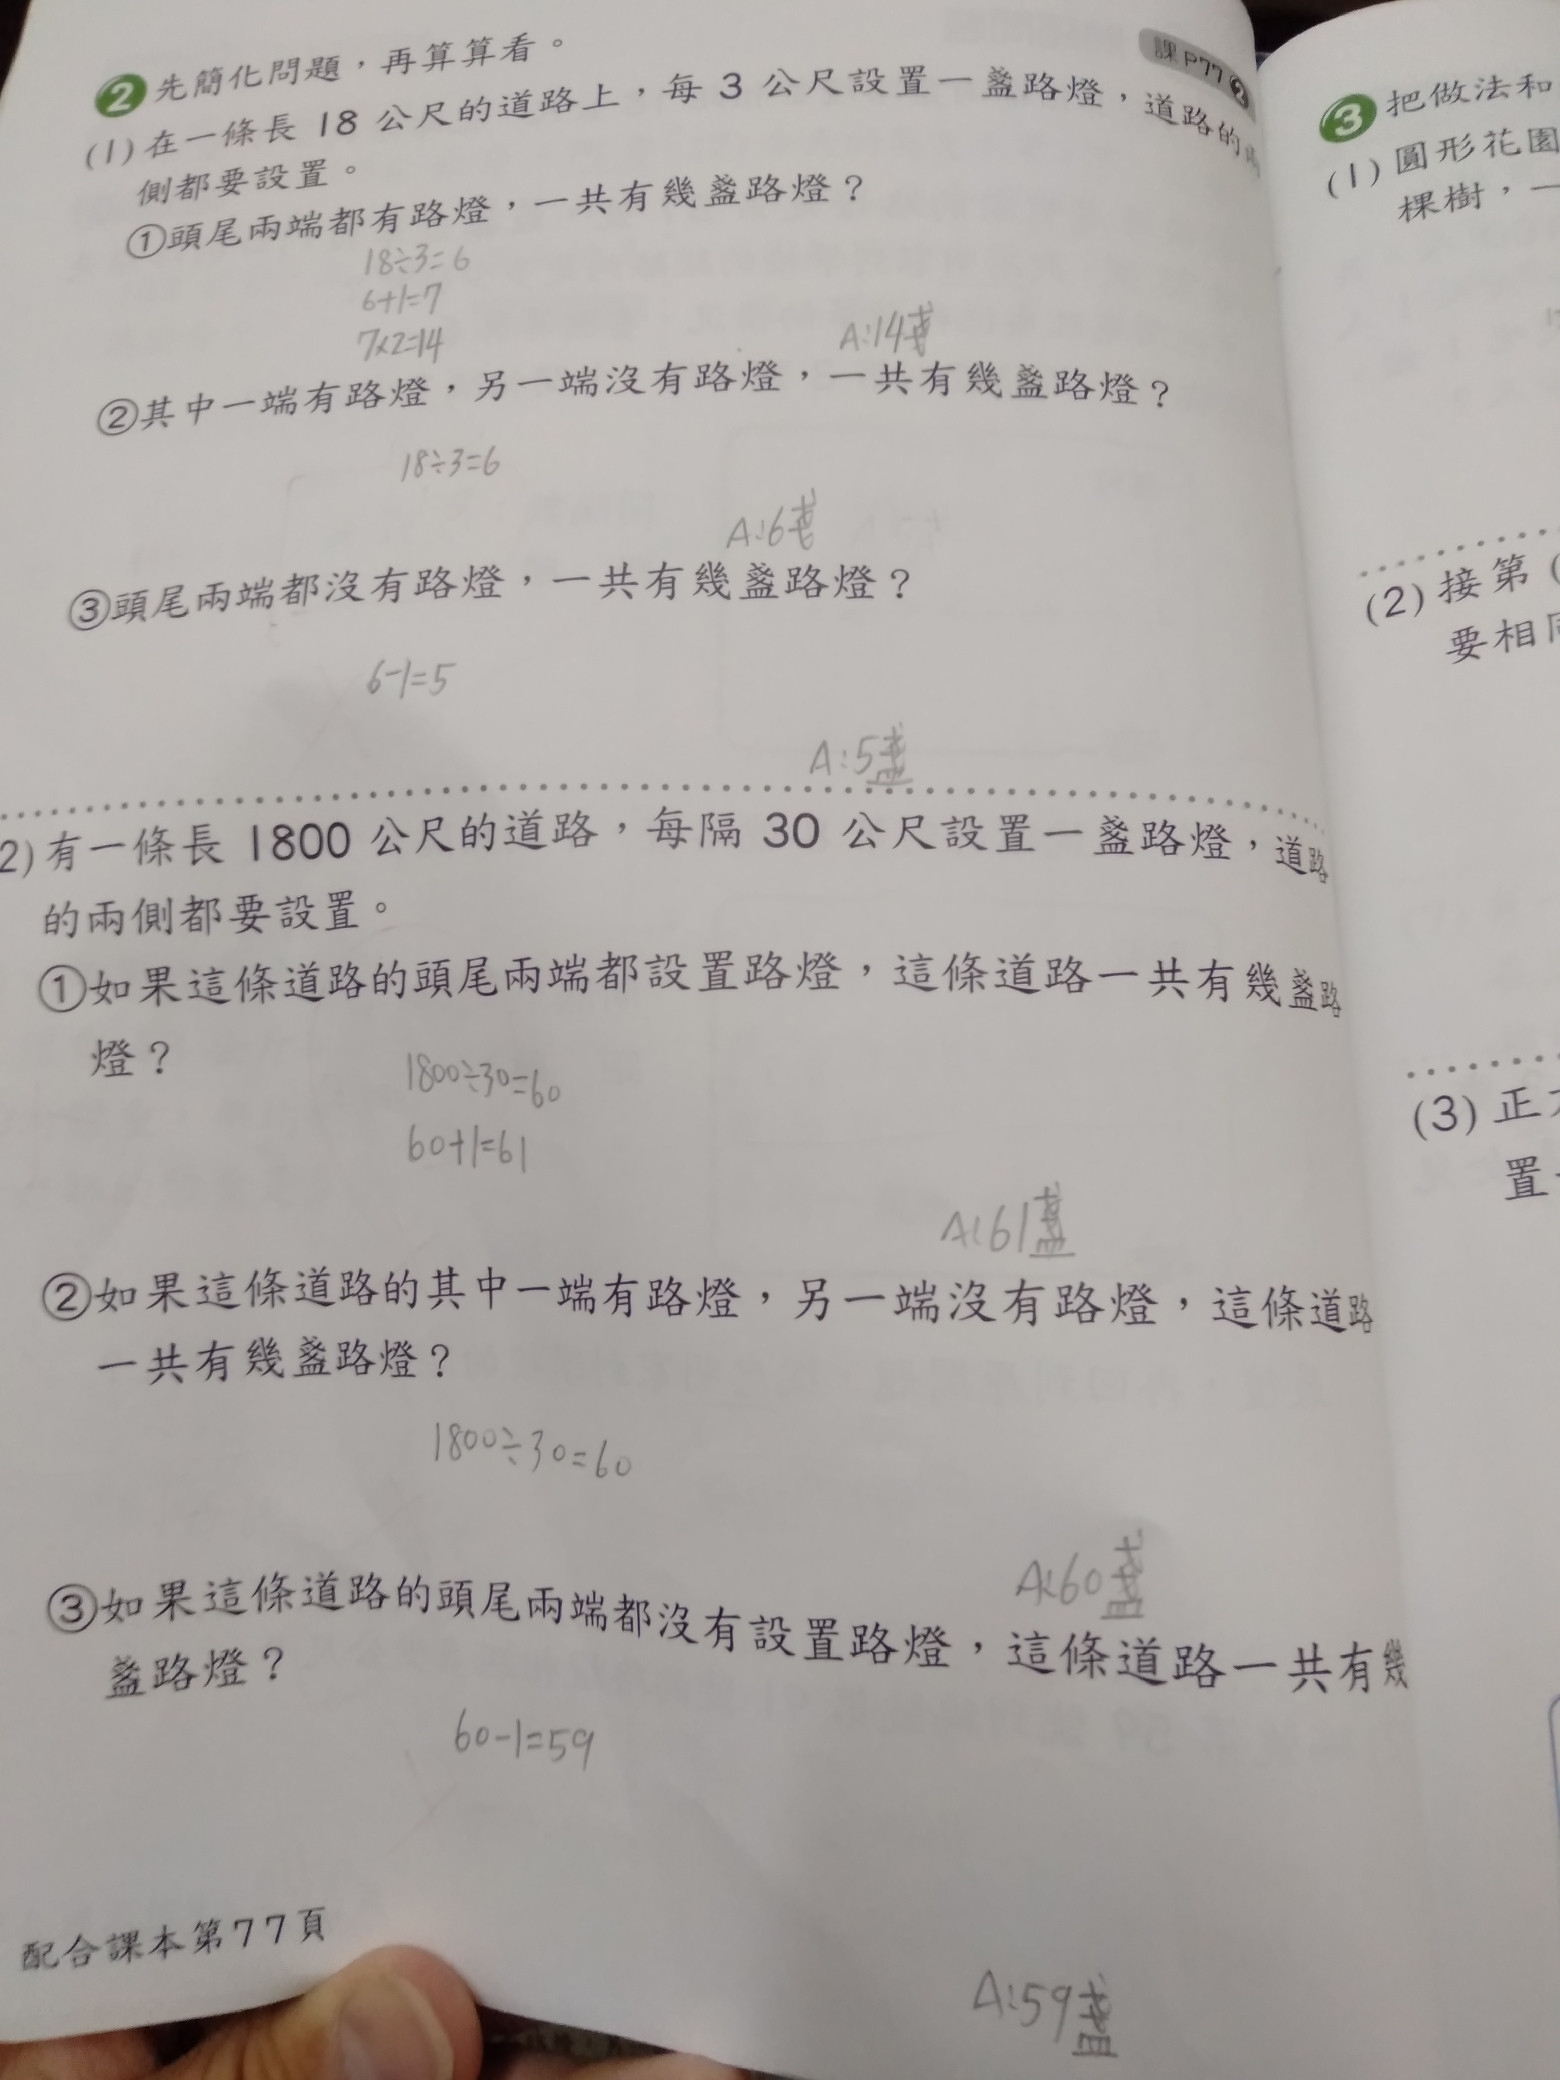 課P77❷
❷先簡化問題，再算算看。
(1)在一條長 18 公尺的道路上，每 3 公尺設置一盞路燈，道路的兩
側都要設置。
①頭尾兩端都有路燈，一共有幾盞路燈？
18÷3=6
6+1=7
7×2=14
A:14盞
②其中一端有路燈，另一端沒有路燈，一共有幾盞路燈？
18÷3=6
A:6盞
③頭尾兩端都沒有路燈，一共有幾盞路燈？
6-1=5
A:5盞
2)有一條長 1800 公尺的道路，每隔 30 公尺設置一盞路燈，道路
的兩側都要設置。
①如果這條道路的頭尾兩端都設置路燈，這條道路一共有幾盞路
燈？
1800÷30=60
60+1=61
A:61盞
②如果這條道路的其中一端有路燈，另一端沒有路燈，這條道路
一共有幾盞路燈？
1800÷30=60
A:60盞
③如果這條道路的頭尾兩端都沒有設置路燈，這條道路一共有幾
盞路燈？
60-1=59
A:59盞
配合課本第77頁
❸把做法和
(1)圓形花園
棵樹，一
(2)接第(
要相同
(3)正方
置一